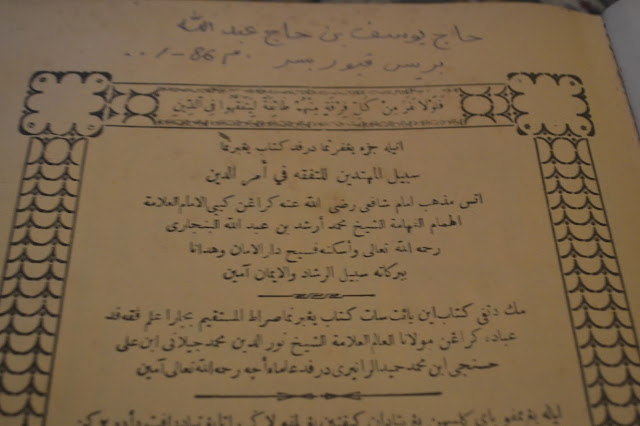 حاج يوسف بن حاج عبد الله
بريس قبور بسر م 86-/..
فلولا نفر من كل فرقة منهم طائفة ليتفقهوا في الدين
انيله جزء يغفرتما درفد كتاب يغبرنما
سبيل المهتدين للتفقه في أمر الدين
اتس مذهب امام شافعي رضى الله عنه كراغن كيبي الامام العلامة
الهمام الفهامة الشيخ محمد أرشد بن عبد الله البنجارى
رحمه الله تعالى وأسكنه فسيح دار الامان وهدانا
ببركاته سبيل الرشاد والايمان آمين
مك دتفى كتاب اين يائت سات كتاب يغبرنما صراط المستقيم بجارا علم فقه فد
عبادة كراغن مولانا العالم العلامة الشيخ نور الدين محمد جيلانى ابن على
حسنجى ابن محمد حميد الرانيرى درفد علماء أچه رحمه الله تعالى آمين